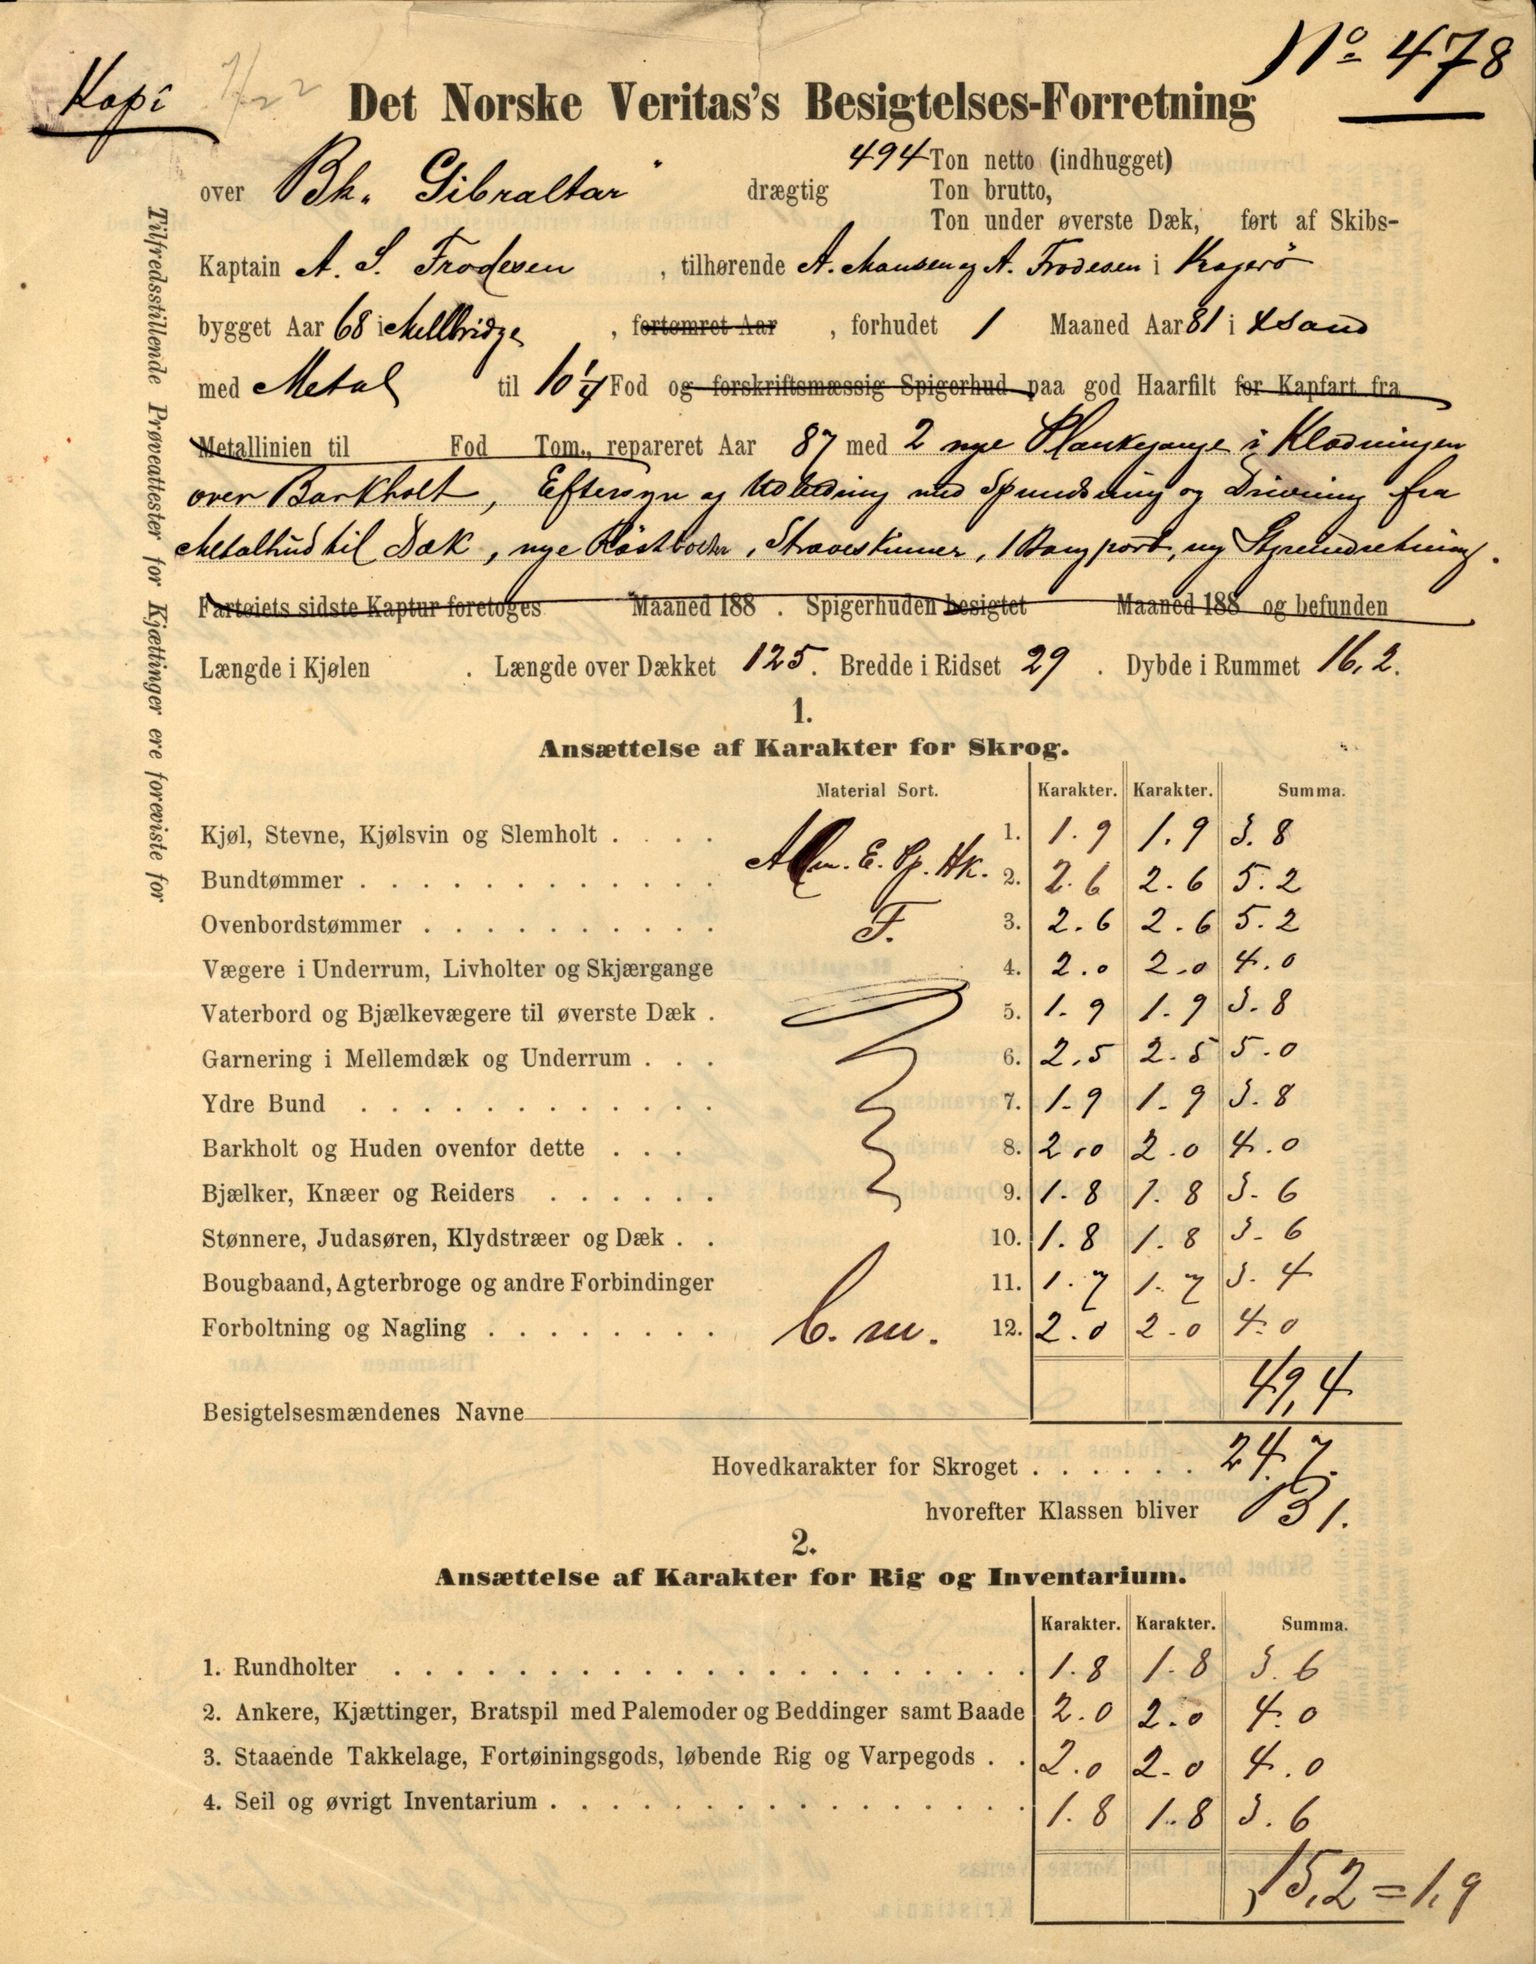 Kopi
No 478
Det Norske Veritas's Besigtelses-Forretning
over Bk. "Gibraltar" drægtig 494 Ton netto (indhugget)
Ton brutto,
Ton under øverste Dæk, ført af Skibs-
Kaptain A. S. Frodesen, tilhørende A. Mansen og A. Frodesen i Kragerö
bygget Aar 68 i Mellbridge, fortømret Aar, forhudet 1 Maaned Aar 81 i
med Metal til 10 1/4 Fod og forskriftsmæssig Spigerhud paa god Haarfilt for Kapfart fra
Metallinien til Fod Tom., repareret Aar 87 med 2 nye Plankegange i Klædningen
over Barkholt, Eftersyn og Udbedring med Spundsning og Drivning fra
Metalhud til Dæk, nye Röstbolter, , 1 port, ny
Fartøiets sidste Kaptur foretoges Maaned 188 . Spigerhuden besigtet Maaned 188 og befunden
Længde i Kjølen . Længde over Dækket 125. Bredde i Ridset 29 . Dybde i Rummet 16,2.
Tilfredsstillende Prøveattester for Kjættinger ere foreviste for
1.
Ansættelse af Karakter for Skrog.
Material Sort. Karakter. Karakter. Summa.
Kjøl, Stevne, Kjølsvin og Slemholt . . . . 1. 1.9 1.9 3.8
Bundtømmer . . . . . . . . . Alm. E. Pp. Hk. 2. 2.6 2.6 5.2
Ovenbordstømmer . . . . . . . . F. 3. 2.6 2.6 5.2
Vægere i Underrum, Livholter og Skjærgange 4. 2.0 2.0 4.0
Vaterbord og Bjælkevægere til øverste Dæk . 5. 1.9 1.9 3.8
Garnering i Mellemdæk og Underrum . . . 6. 2.5 2.5 5.0
Ydre Bund . . . . . . . . . 7. 1.9 1.9 3.8
Barkholt og Huden ovenfor dette . . . 8. 2.0 2.0 4.0
Bjælker, Knæer og Reiders . . . . . . 9. 1.8 1.8 3.6
Stønnere, Judasøren, Klydstræer og Dæk . . 10. 1.8 1.8 3.6
Bougbaand, Agterbroge og andre Forbindinger 11. 1.7 1.7 3.4
Forboltning og Nagling . . . . . . . C. m. 12. 2.0 2.0 4.0
49,4
Besigtelsesmændenes Navne
Hovedkarakter for Skroget . . . . . . 24.7.
hvorefter Klassen bliver B 1.
2.
Ansættelse af Karakter for Rig og Inventarium.
Karakter. Karakter. Summa.
1. Rundholter . . . . . . . . . . . . . . . . . . 1.8 1.8 3.6
2. Ankere, Kjættinger, Bratspil med Palemoder og Beddinger samt Baade 2.0 2.0 4.0
3. Staaende Takkelage, Fortøiningsgods, løbende Rig og Varpegods . . 2.0 2.0 4.0
4. Seil og øvrigt Inventarium . . . . . . . . . . . . . 1.8 1.8 3.6
15,2 = 1,9